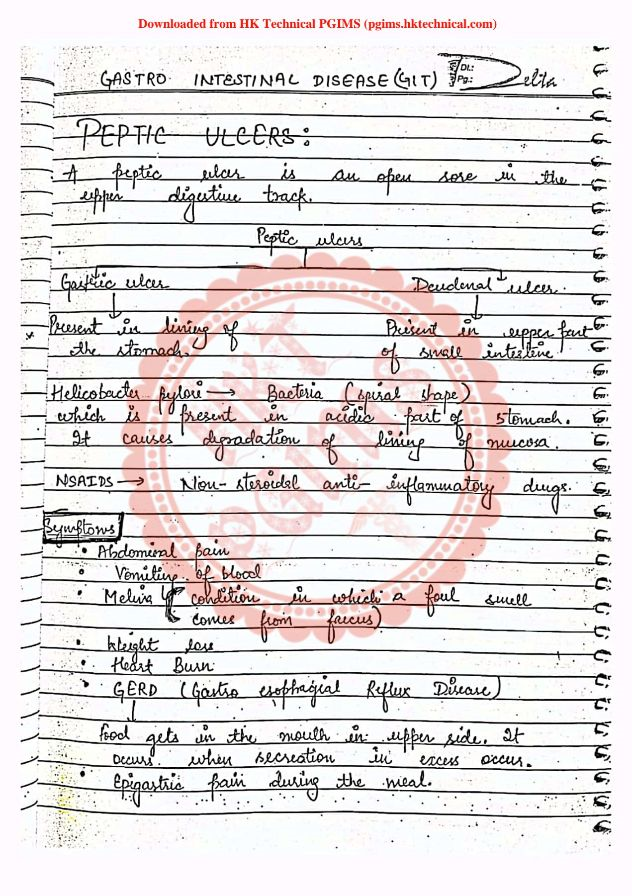 Downloaded from HK Technical PGIMS (pgims.hktechnical.com)
GASTRO INTESTINAL DISEASE (GIT)
Dt.:
Pg.:
Delta
PEPTIC ULCERS:
A peptic ulcer is an open sore in the
upper digestive track.
Peptic ulcers
Gastric ulcer
Deudenal ulcer.
Present in lining of
the stomach.
Present in upper part
of small intestine
Helicobacter pylori → Bacteria (spiral shape)
which is present in acidic part of stomach.
It causes degradation of lining of mucosa.
NSAIDS → Non-steroidal anti-inflammatory drugs.
Symptoms
• Abdominal pain
• Vomiting of blood
• Melina (condition in which a foul smell
comes from faecus)
• Weight loss
• Heart Burn
• GERD (Gastro esophagial Reflux Disease)
Food gets in the mouth in upper side. It
occurs when secreation in excess occur.
• Epigastric pain during the meal.